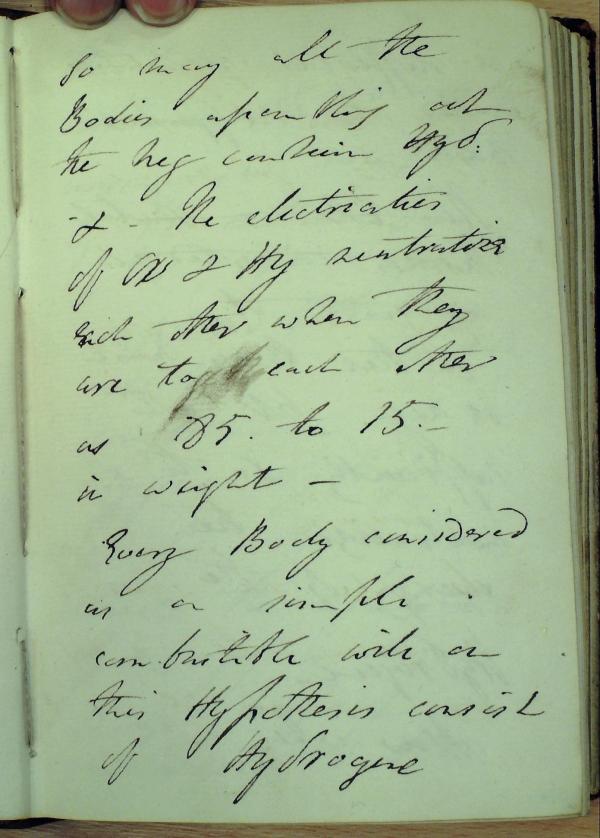 So may all the
Bodies separating at
the neg contain Hyd:
- & - The electricities
of Ox & Hy neutralize
each other when they
are to each other
as 85. to 15. -
in weight -
Every Body considered
as a simple
combustible will on
this Hypothesis consist
of Hydrogene